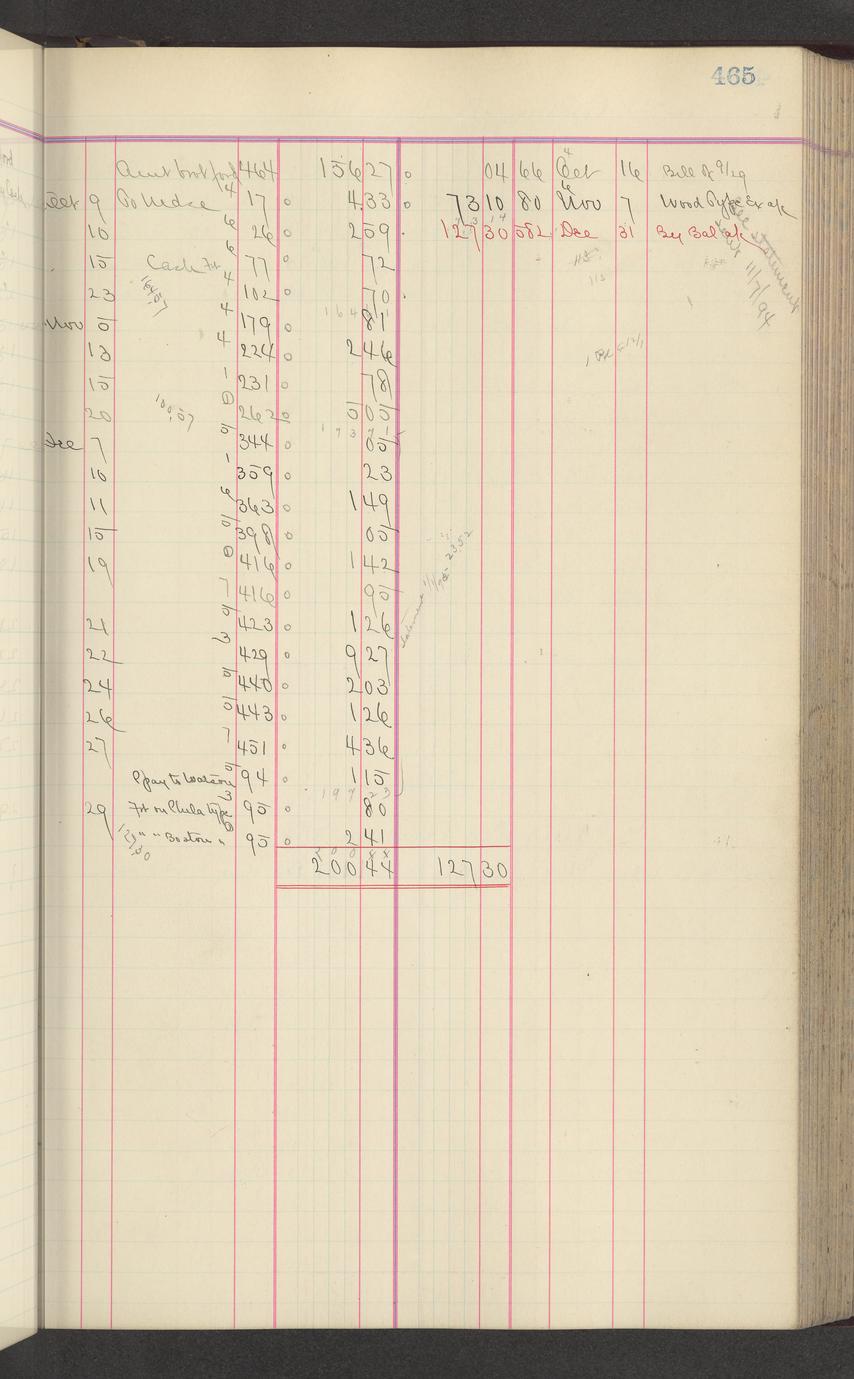 465
Amt brot ford 464 156 27 04 66 Oct 16 Bill of 9/29
Oct 9 To Mdse 4 17 4 33 73 10 80 Nov 7 Wood Type Ex a/c
10 6 26 2 59 127 30 582 Dec 31 By Bal a/c
15 Cash Frt 6 77 72
23 4 102 70
Nov 5 4 179 81
13 4 224 2 46
15 1 231 78
20 262 5 05
Dec 7 5 344 05
10 1 359 23
11 6 363 1 49
15 5 398 05
19 416 1 42
7 416 95
21 5 423 1 26
22 3 429 9 27
24 5 440 2 03
26 5 443 1 26
27 7 451 4 36
Ppay to Watson 5 94 1 15
29 Frt on Chula type 3 95 80
" " Boston " 95 2 41
200 44 127 30
See statement
11/7/94
164.57
180.57
164
173 71
197 23
200 44
statement 1/1/95 23.52